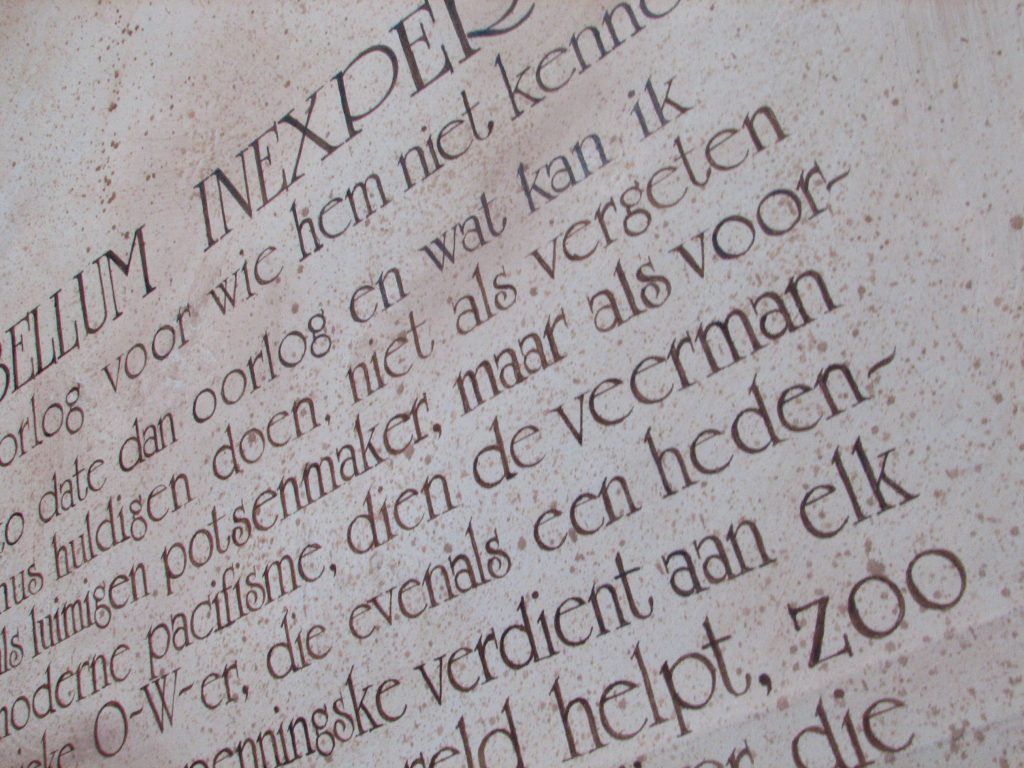 BELLUM INEXPER
orlog voor wie hem niet kenne
to date dan oorlog en wat kan ik
mus huldigen doen, niet als vergeten
als luimigen potsenmaker, maar als voor-
moderne pacifisme, dien de veerman
O-W-er, die evenals een heden-
penningske verdient aan elk
reld helpt, zoo
die